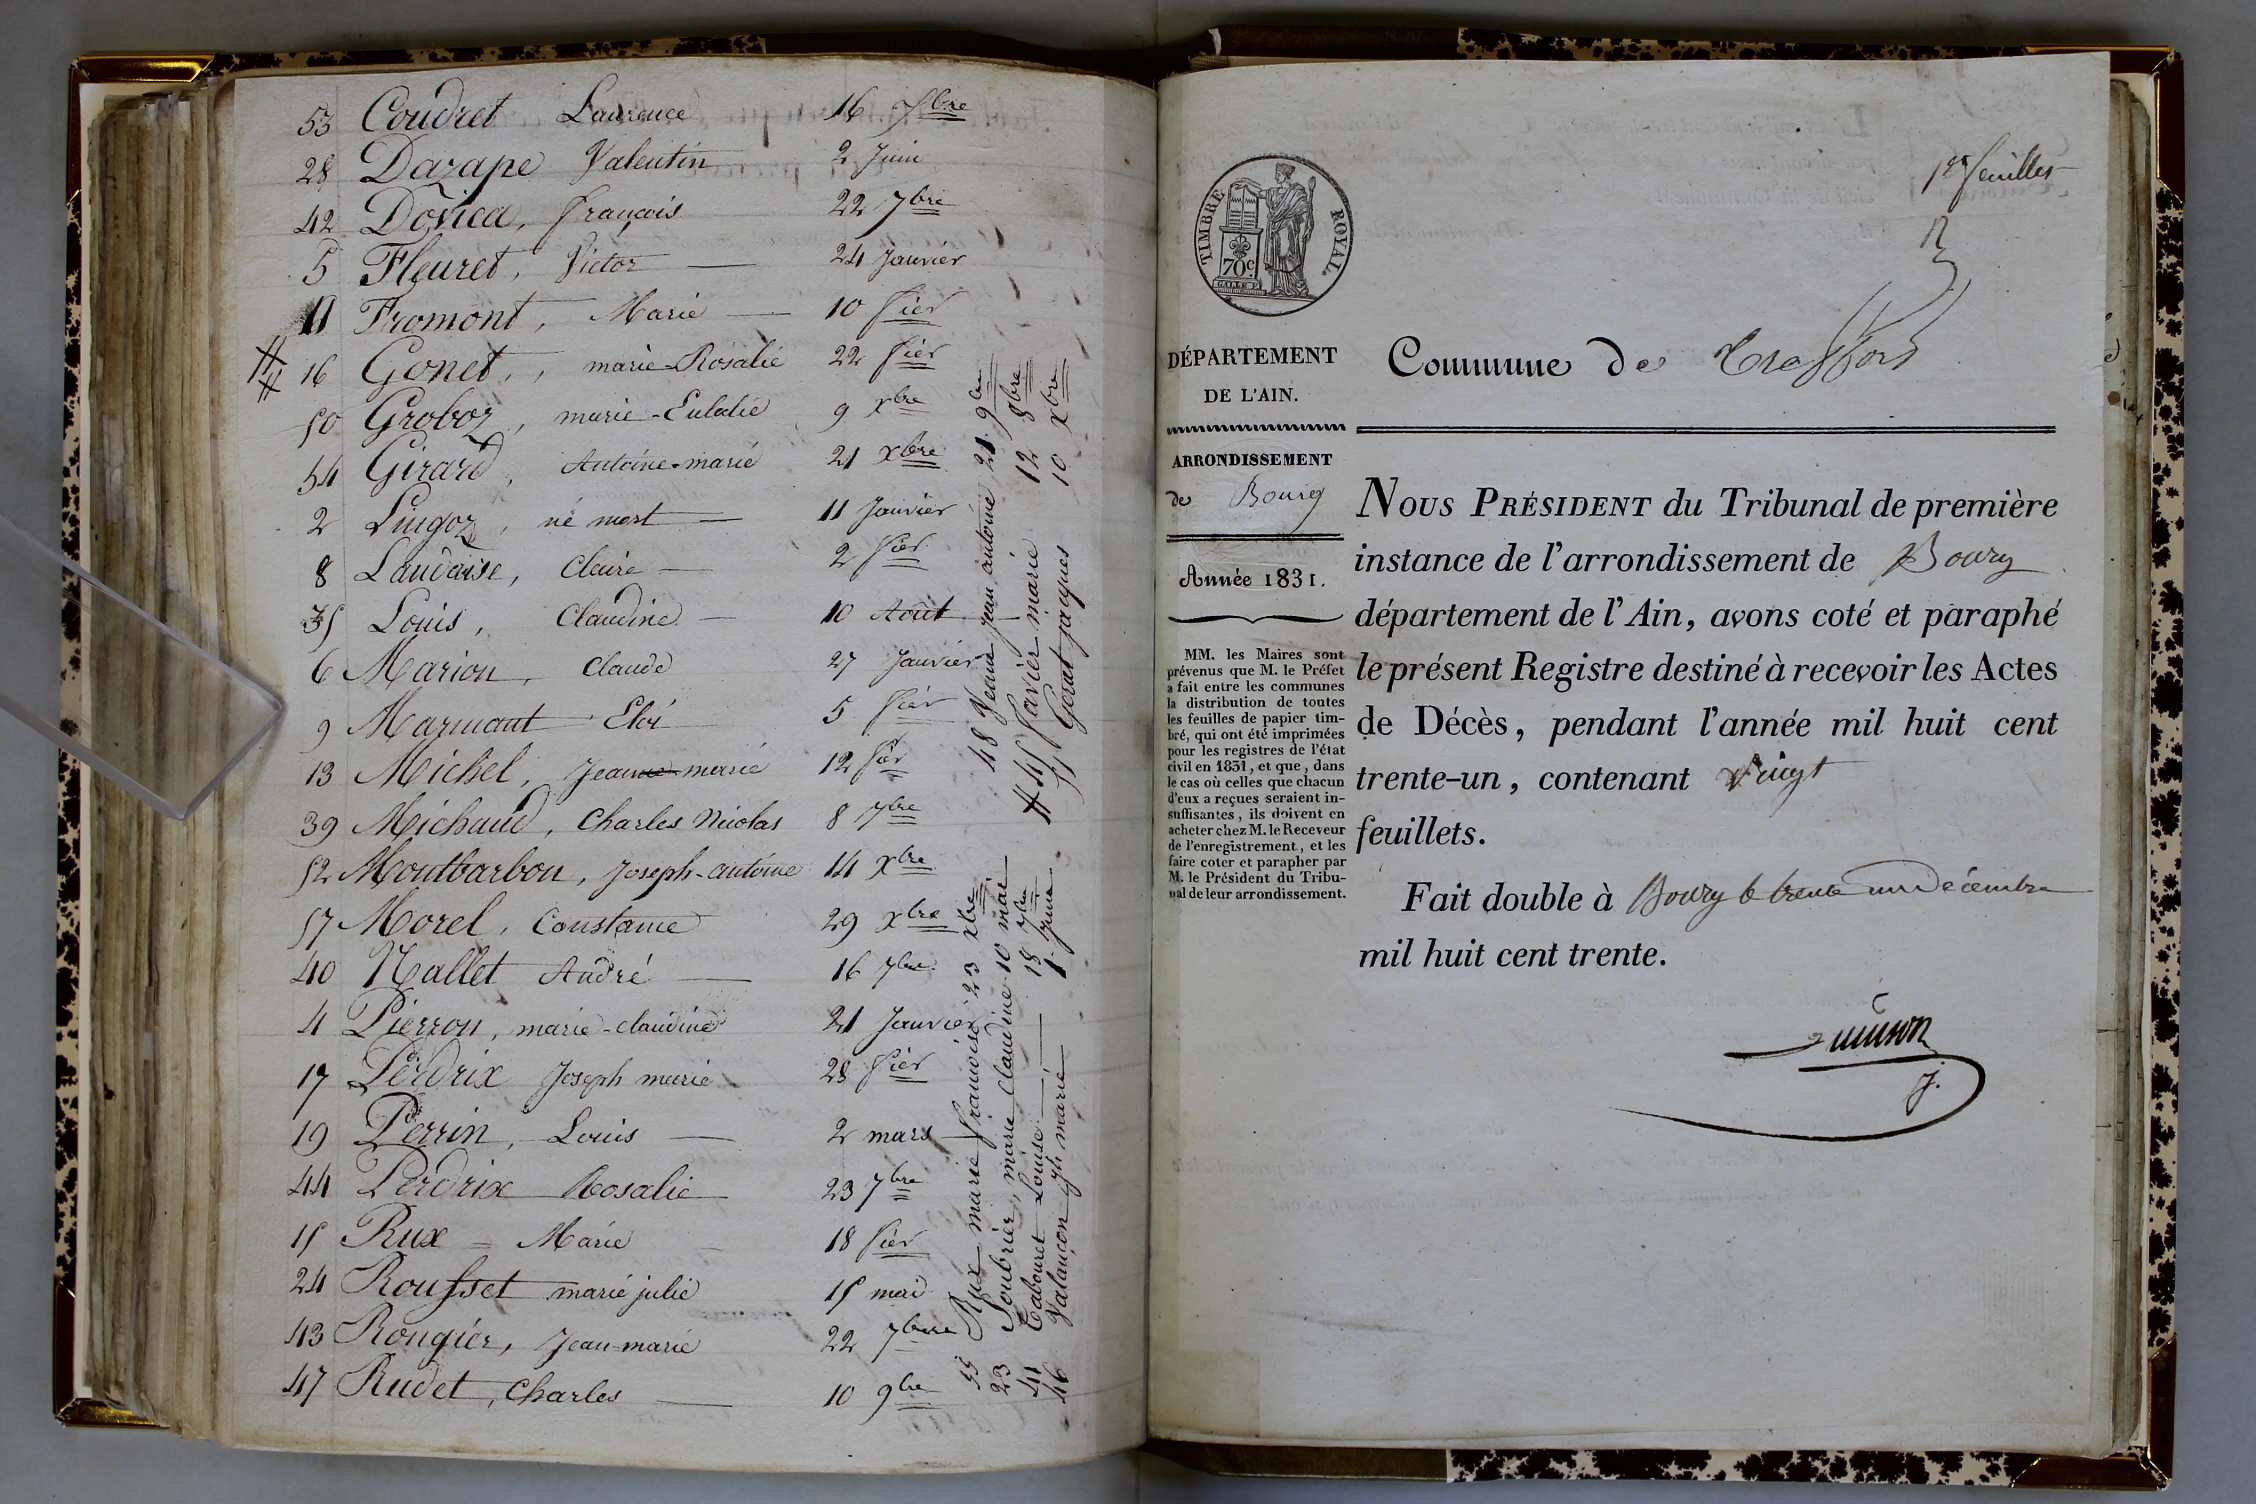 53 Coudret Laurence 16 Xbre
28 Dazape Valentin 2 Juin
42 Dorica, françois 22 7bre
5 Fleuret, Victor 24 Janvier
11 Fromont, Marie 10 fier
16 Gonet, marie-Rosalie 22 fier
50 Groboz, marie-Eulalie 9 Xbre
54 Girard, Antoine-marie 21 Xbre
2 Lingoz, né mort 11 Janvier
8 Laudaise, Claire 2 fier
35 Louis, Claudine 10 Août
6 Marion, Claude 27 Janvier
9 Marmant Eloi 5 fier
13 Michel, Jean marie 12 fier
39 Michaud, Charles Nicolas 8 7bre
52 Montbarbon, Joseph-antoine 14 Xbre
57 Morel, Constance 29 Xbre
40 Nallet André 16 7bre
4 Pierron, marie-claudine 21 Janvier
17 Perdrix Joseph marie 28 fier
19 Perrin, Louis 2 mars
44 Perdrix Rosalie 23 7bre
15 Rux = Marie 18 fier
24 Rousset marie julie 15 mai
43 Rongier, Jean-marie 22 7bre
47 Rudet, Charles 10 9bre
48 jean antoine 21 9bre
45 marie 12 8bre
51 jacques 10 Xbre
55 Rux marie françoise 23 Xbre
23 Soubrier, marie Claudine 10 mai
41 Tabouret Louise 18 7bre
46 Valançon jh marie
1er feuillet
TIMBRE ROYAL.
70 c.
DÉPARTEMENT
DE L'AIN.
Commune de Treffort
ARRONDISSEMENT
de Bourg
Année 1831.
MM. les Maires sont
prévenus que M. le Préfet
a fait entre les communes
la distribution de toutes
les feuilles de papier tim-
bré, qui ont été imprimées
pour les registres de l'état
civil en 1831, et que, dans
le cas où celles que chacun
d'eux a reçues seraient in-
suffisantes, ils doivent en
acheter chez M. le Receveur
de l'enregistrement, et les
faire coter et parapher par
M. le Président du Tribu-
nal de leur arrondissement.
NOUS PRÉSIDENT du Tribunal de première
instance de l'arrondissement de Bourg
département de l'Ain, avons coté et paraphé
le présent Registre destiné à recevoir les Actes
de Décès, pendant l'année mil huit cent
trente-un, contenant vingt
feuillets.
Fait double à Bourg le trente un décembre
mil huit cent trente.